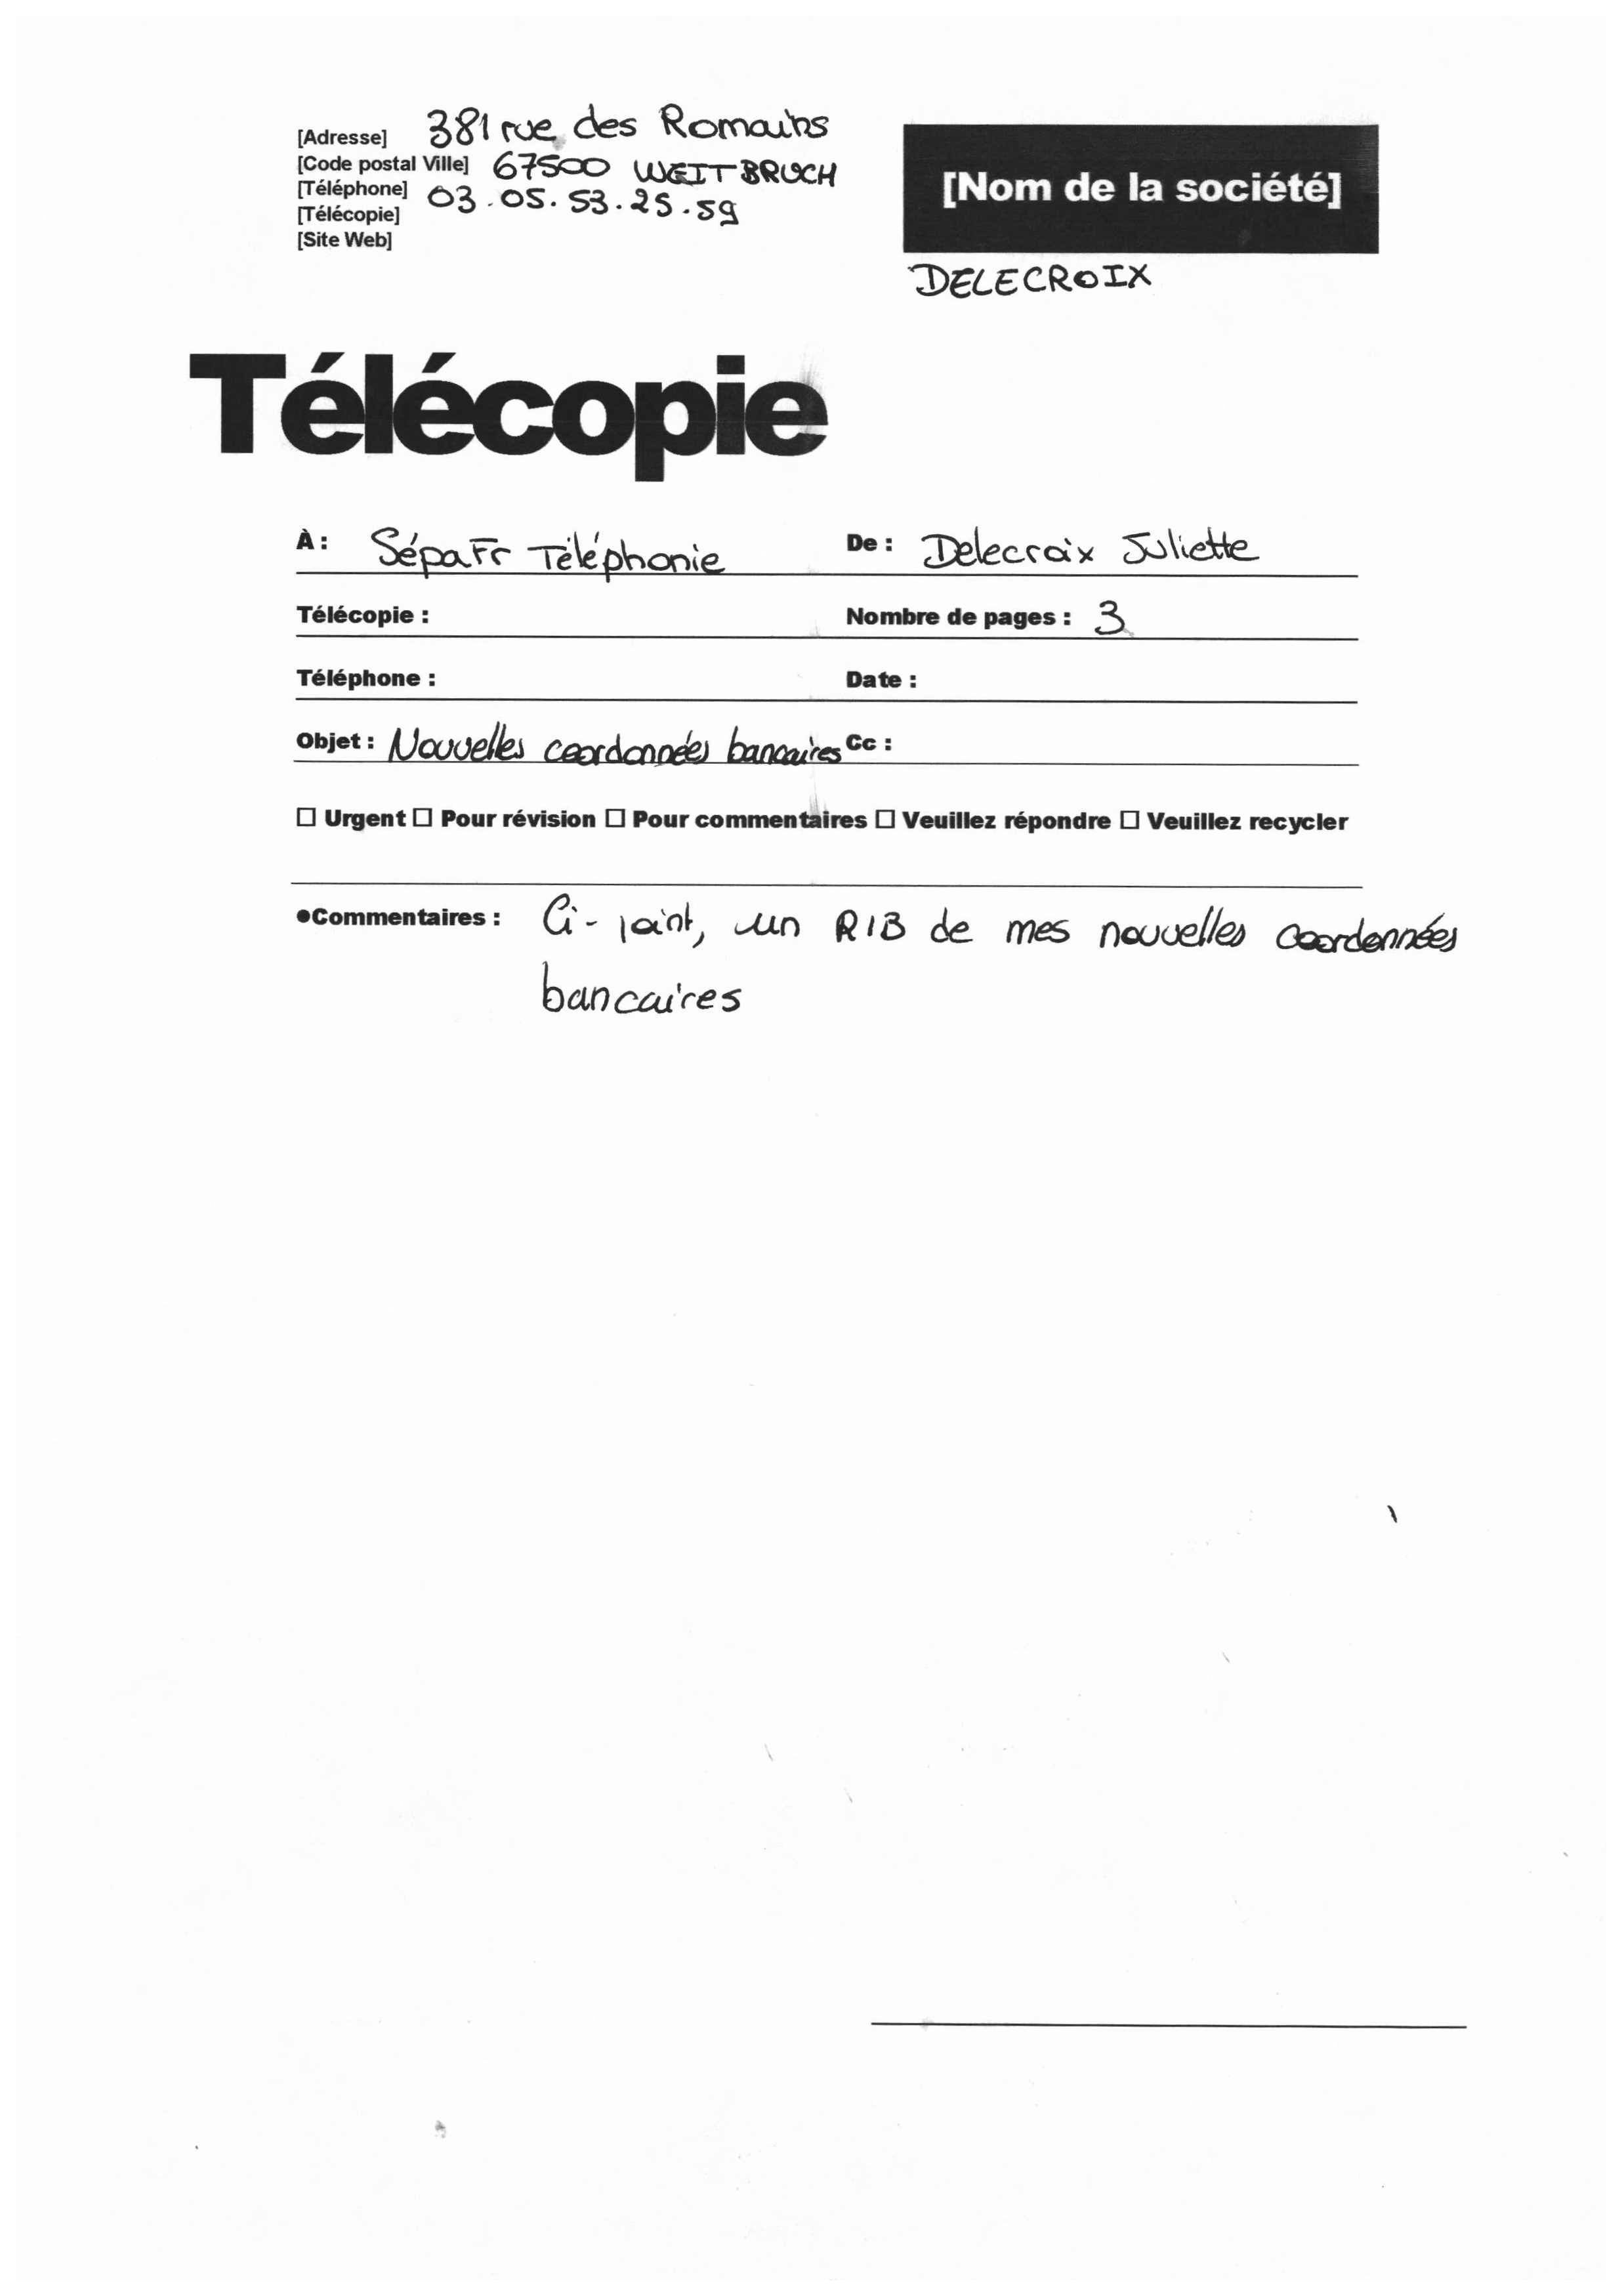 [Adresse] 381 rue des Romains
[Code postal Ville] 67500 WEITBRUCH
[Téléphone] 03.05.53.25.59
[Télécopie]
[Site Web]
[Nom de la société]
DELECROIX
Télécopie
À : SépaFr Téléphonie De : Delecroix Juliette
Télécopie : Nombre de pages : 3
Téléphone : Date :
Objet : Nouvelles coordonnées bancaires Cc :
☐ Urgent ☐ Pour révision ☐ Pour commentaires ☐ Veuillez répondre ☐ Veuillez recycler
•Commentaires : Ci-joint, un RIB de mes nouvelles coordonnées
bancaires